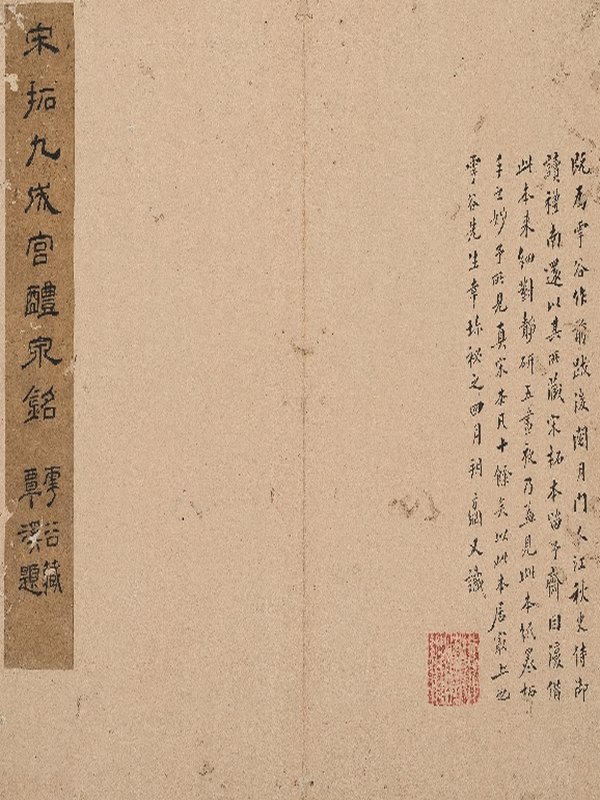 既為雩谷作前跋後閱月門人江秋史侍御
讀禮南還以其所藏宋拓本留予齋因復借
此本來細對静研五晝夜乃益見此本紙墨拓
手之妙予所見真宋本凡十餘矣以此本居最上也
雩谷先生幸珍祕之四月朔方綱又識
宋拓九成宮醴泉銘
雩谷藏
覃溪題